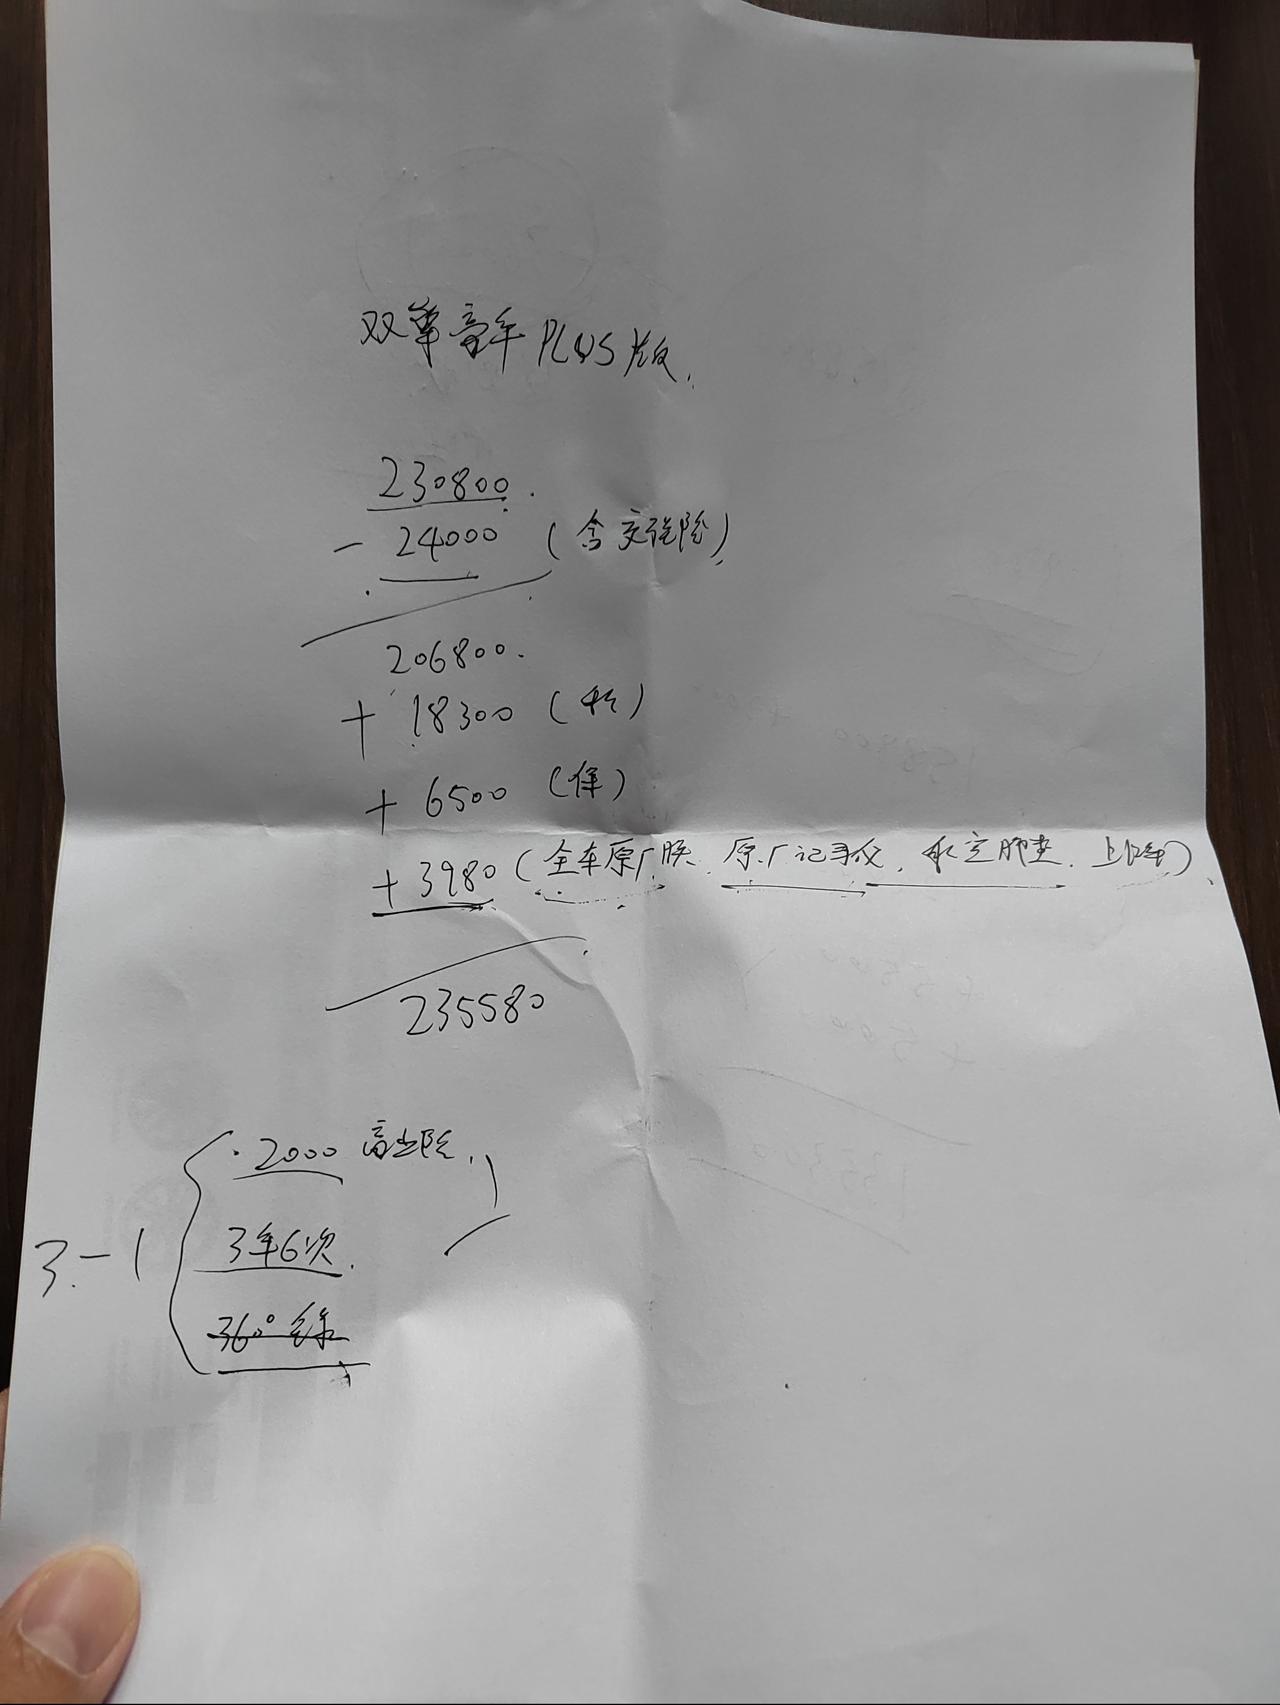 双擎豪华PLUS版.
230800.
- 24000 (含交强险)
206800.
+ 18300 (税)
+ 6500 (保)
+3980 (全车原厂膜. 原厂记录仪, 航空脚垫. 上牌)
235580
2000 商业险.
3-1
3年6次.
360°